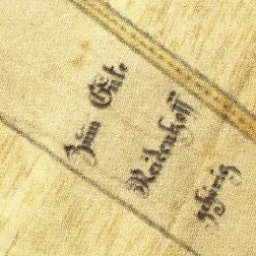 Zum Gute
Raidenhoff
gehörig